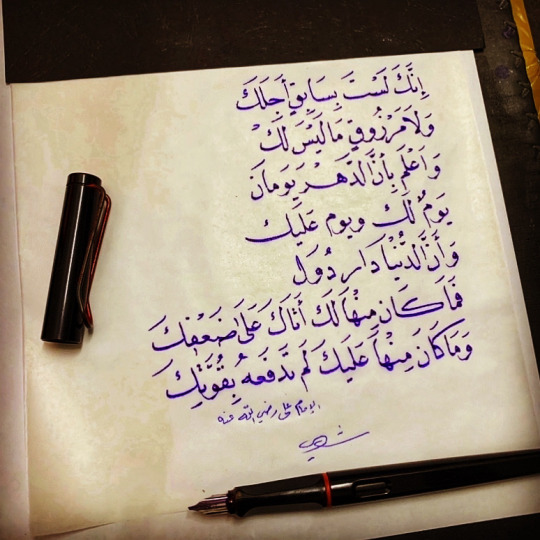 إِنَّكَ لَسْتَ بِسَابِقٍ أَجَلَكَ
وَلَا مَرْزُوقٍ مَا لَيْسَ لَكْ
وَاعْلَمْ بِأَنَّ الدَّهْرَ يَومَانَ
يَومٌ لَكَ ويوم عَلَيك
وَأَنَّ الدُّنْيَا دَار دُوَل
فَمَا كَانَ مِنْهَا لَكَ أَتَاكَ عَلَى ضَعْفِكَ
وَمَا كَانَ مِنْهَا عَلَيكَ لَم تَدْفَعهُ بِقُوَّتِكَ
الإمام علي رضي الله عنه